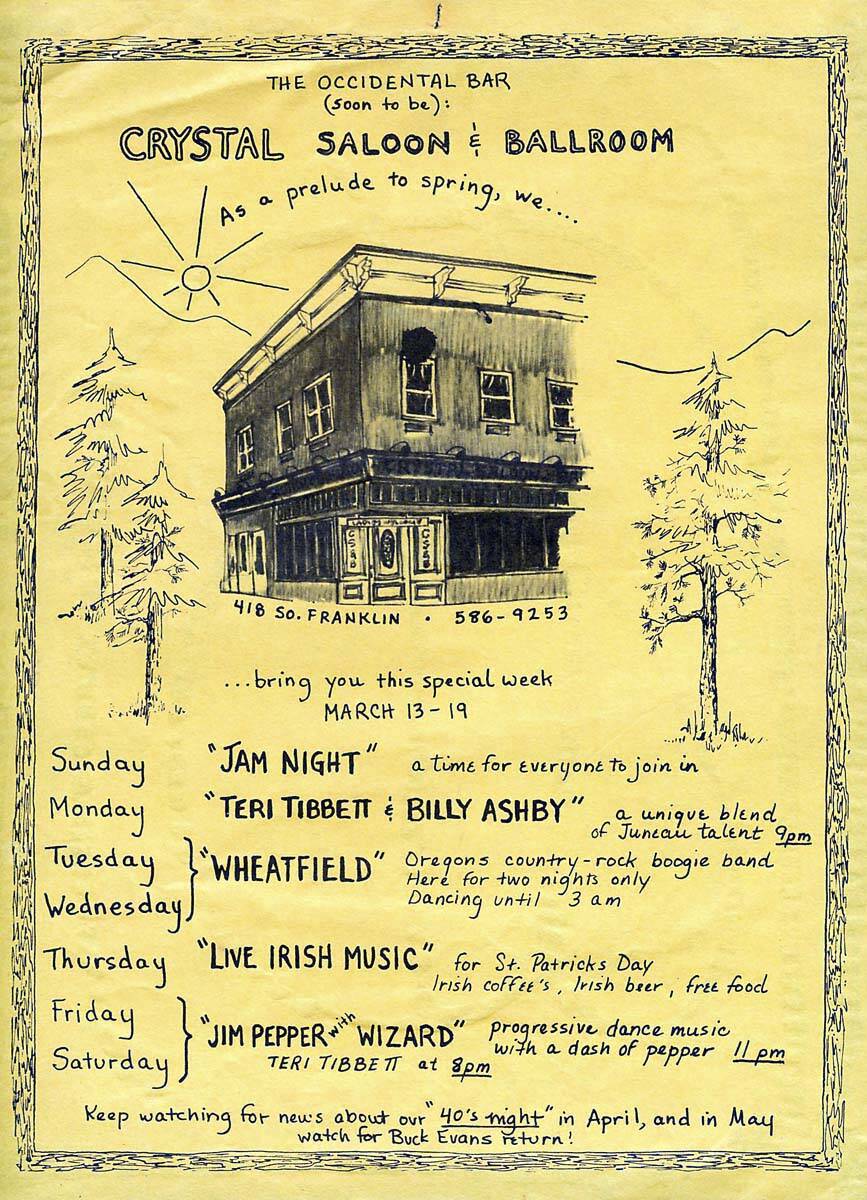 THE OCCIDENTAL BAR
(soon to be):
CRYSTAL SALOON & BALLROOM
As a prelude to spring, we....
CRYSTAL SALOON
418 SO. FRANKLIN • 586-9253
...bring you this special week
MARCH 13-19
Sunday "JAM NIGHT" a time for everyone to join in
Monday "TERI TIBBETT & BILLY ASHBY" a unique blend
of Juneau talent 9pm
Tuesday
Wednesday
"WHEATFIELD" Oregons country-rock boogie band
Here for two nights only
Dancing until 3 am
Thursday "LIVE IRISH MUSIC" for St. Patricks Day
Irish coffee's, Irish beer, free food
Friday
Saturday
"JIM PEPPER with WIZARD" progressive dance music
with a dash of pepper 11 pm
TERI TIBBETT at 8pm
Keep watching for news about our "40's night" in April, and in May
watch for Buck Evans return!